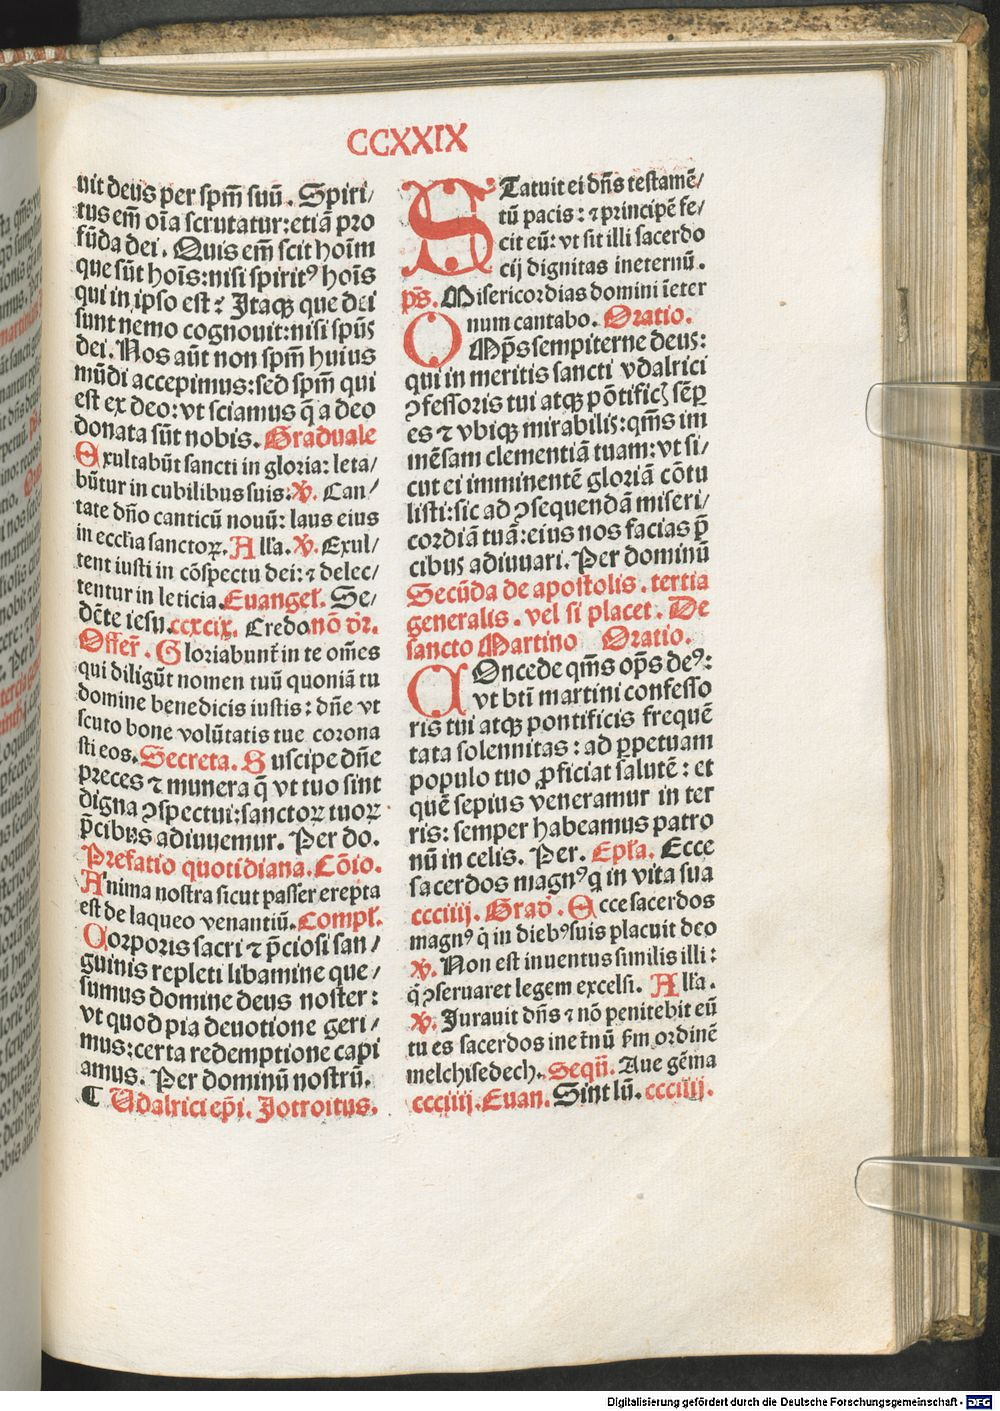 CCXXIX
uit deus per spm̄ suū. Spiri/
tus em̄ oīa scrutatur: etiā pro
fūda dei. Quis em̄ scit hoīm
que sūt hoīs: nisi spiritꝰ hoīs
qui in ipso est? Itaqꝫ que dei
sunt nemo cognouit: nisi spūs
dei. Nos aūt non spm̄ huius
mūdi accepimus: sed spm̄ qui
est ex deo: vt sciamus q̄ a deo
donata sūt nobis. Graduale
Exultabūt sancti in gloria: leta/
būtur in cubilibus suis: ℣. Can/
tate dn̄o canticū nouū: laus eius
in eccl̄ia sanctoꝝ. All'a. ℣. Exul/
tent iusti in cōspectu dei: ⁊ delec/
tentur in leticia. Euangel'. Se/
dēte iesu. ccxcix. Credo nō dr̄.
Offer̄. Gloriabunt̄ in te om̄es
qui diligūt nomen tuū quoniā tu
domine benedicis iustis: dn̄e vt
scuto bone volūtatis tue corona
sti eos. Secreta. Suscipe dn̄e
preces ⁊ munera q̄ vt tuo sint
digna ꝯspectui: sanctoꝝ tuoꝝ
p̄cibus adiuuemur. Per do.
Prefatio quotidiana. Cōio.
Anima nostra sicut passer erepta
est de laqueo venantiū. Compl'.
Corporis sacri ⁊ p̄ciosi san/
guinis repleti libamine que/
sumus domine deus noster:
vt quod pia deuotione geri/
mus: certa redemptione capi
amus. Per dominū nostrū.
¶ Udalrici ep̄i. Jotroitus.
STatuit ei dn̄s testamē/
tū pacis: ⁊ principē fe/
cit eū: vt sit illi sacerdo
cij dignitas ineternū.
ps̄. Misericordias domini īeter
num cantabo. Oratio.
OMp̄s sempiterne deus:
qui in meritis sancti vdalrici
ꝯfessoris tui atqꝫ pōtificꝭ sēꝑ
es ⁊ vbiqꝫ mirabilis: qm̄s im
mēsam clementiā tuam: vt si/
cut ei imminentē gloriā cōtu
listi: sic ad ꝯsequendā miseri/
cordiā tuā: eius nos facias p̄
cibus adiuuari. Per dominū
Secūda de apostolis. tertia
generalis. vel si placet. De
sancto Martino Oratio.
COncede qm̄s op̄s deꝰ:
vt bt̄i martini confesso
ris tui atqꝫ pontificis frequē
tata solennitas: ad ꝑpetuam
populo tuo ꝓficiat salutē: et
quē sepius veneramur in ter
ris: semper habeamus patro
nū in celis. Per. Epl'a. Ecce
sacerdos magnꝰ q̇ in vita sua
ccciiij. Grad'. Ecce sacerdos
magnꝰ q̇ in diebꝰ suis placuit deo
℣. Non est inuentus similis illi:
q̇ ꝯseruaret legem excelsi. All'a.
℣. Jurauit dn̄s ⁊ nō penitebit eū
tu es sacerdos inet̄nū ẜm ordinē
melchisedech. Seqū. Aue gēma
ccciiij. Euan. Sint lū. ccciiij.
Digitalisierung gefördert durch die Deutsche Forschungsgemeinschaft - DFG